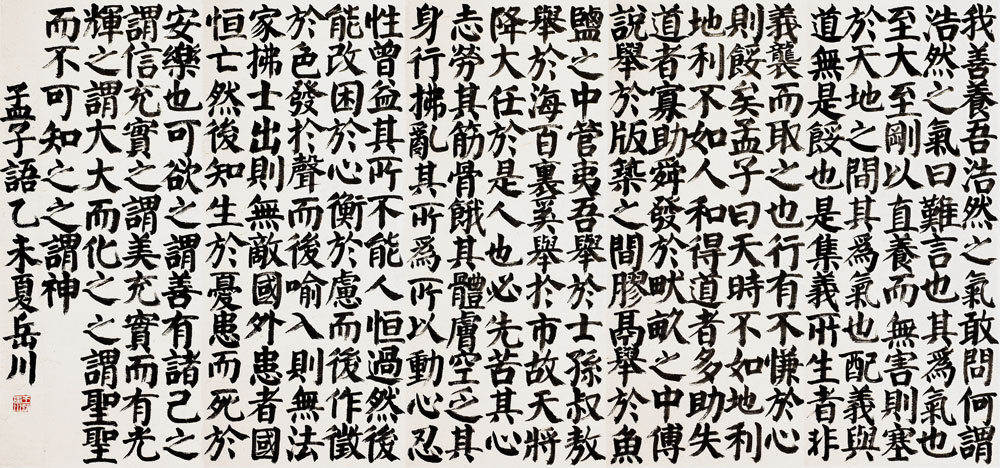 我善養吾浩然之氣敢問何謂
浩然之氣曰難言也其爲氣也
至大至剛以直養而無害則塞
於天地之間其爲氣也配義與
道無是餒也是集義所生者非
義襲而取之也行有不慊於心
則餒矣孟子曰天時不如地利
地利不如人和得道者多助失
道者寡助舜發於畎畝之中傅
說舉於版築之間膠鬲舉於魚
鹽之中管夷吾舉於士孫叔敖
舉於海百裏奚舉於市故天將
降大任於是人也必先苦其心
志勞其筋骨餓其體膚空乏其
身行拂亂其所爲所以動心忍
性曾益其所不能人恒過然後
能改困於心衡於慮而後作徵
於色發於聲而後喻入則無法
家拂士出則無敵國外患者國
恒亡然後知生於憂患而死於
安樂也可欲之謂善有諸己之
謂信充實之謂美充實而有光
輝之謂大大而化之之謂聖聖
而不可知之之謂神
孟子語乙未夏岳川